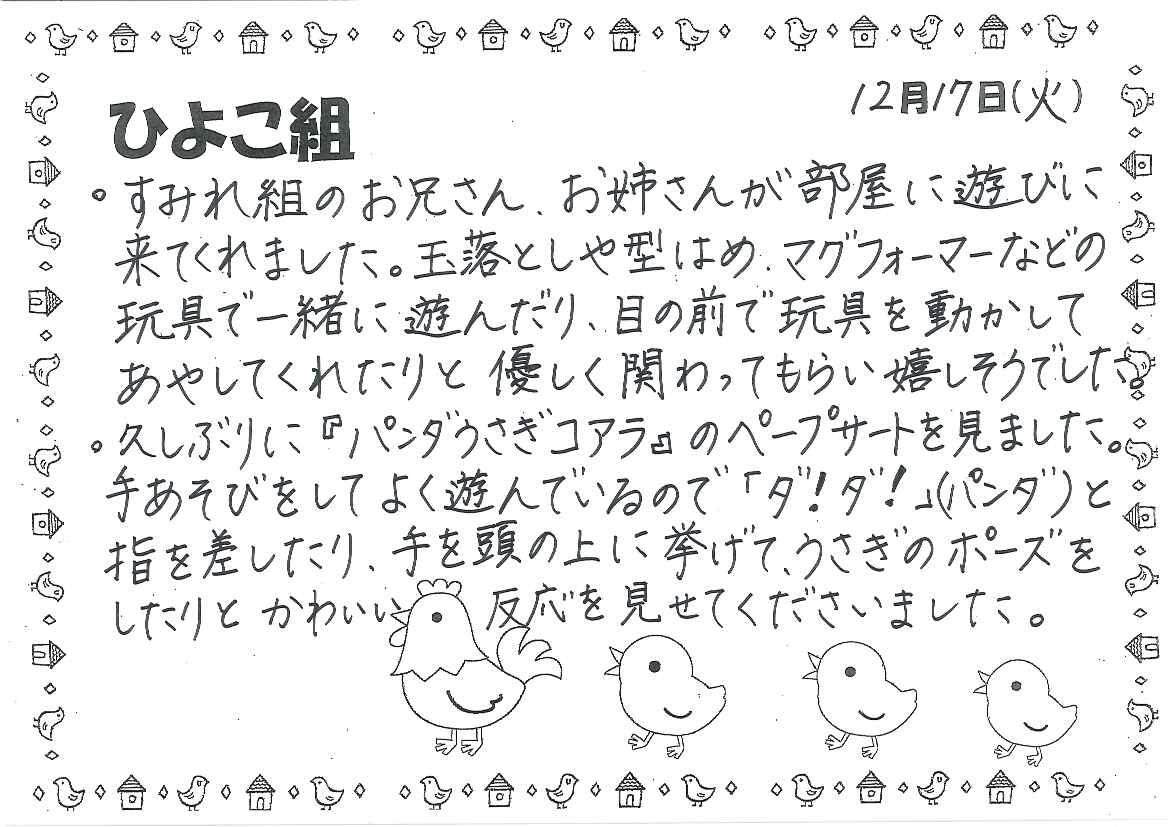 12月17日(火)
ひよこ組
。すみれ組のお兄さん、お姉さんが部屋に遊びに
来てくれました。玉落としや型はめ、マグフォーマーなどの
玩具で一緒に遊んだり、目の前で玩具を動かして
あやしてくれたりと優しく関わってもらい嬉しそうでした。
。久しぶりに『パンダうさぎコアラ』のペープサートを見ました。
手あそびをしてよく遊んでいるので「ダ!ダ!」(パンダ)と
指を差したり、手を頭の上に挙げて、うさぎのポーズを
したりとかわいい反応を見せてくださいました。